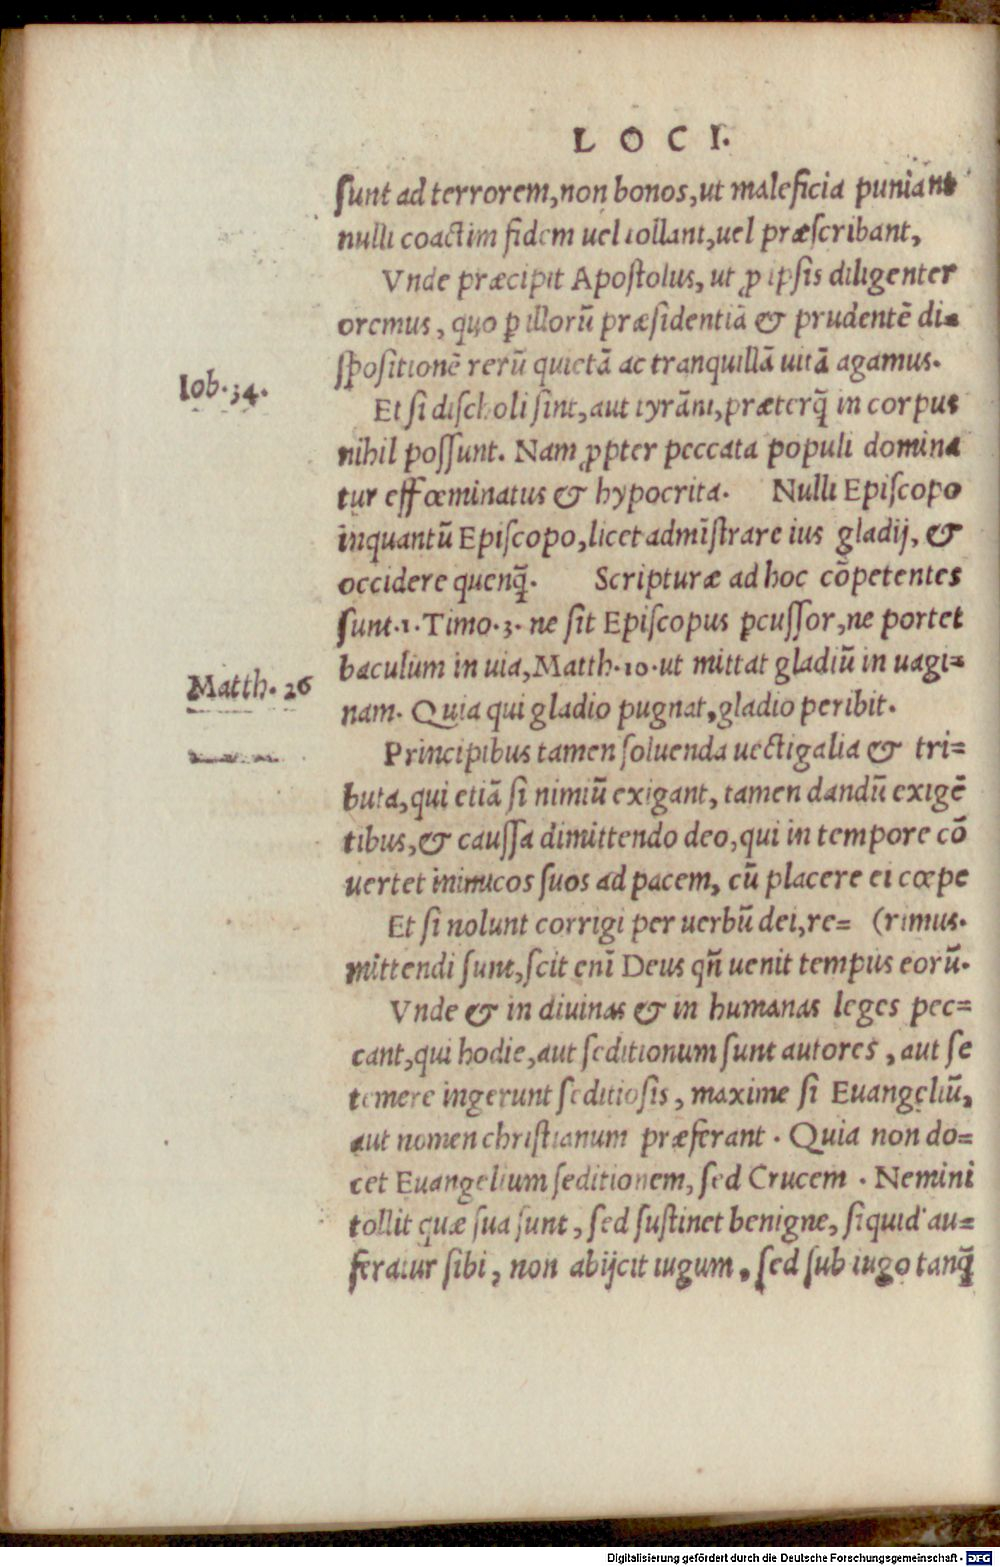 LOCI.
sunt ad terrorem, non bonos, ut maleficia puniant
nulli coactim fidem uel tollant, uel præscribant,
Vnde præcipit Apostolus, ut ꝓ ipsis diligenter
oremus, quo ꝑ illorū præsidentiā & prudentē di=
spositionē rerū quietā ac tranquillā uitā agamus.
Iob. 34.
Et si discholi sint, aut tyrāni, præterq̄ in corpus
nihil possunt. Nam ꝓpter peccata populi domina
tur effœminatus & hypocrita. Nulli Episcopo
inquantū Episcopo, licet admīstrare ius gladij, &
occidere quenq̄. Scripturæ ad hoc cōpetentes
sunt. 1. Timo. 3. ne sit Episcopus ꝑcussor, ne portet
baculum in uia, Matth. 10. ut mittat gladiū in uagi=
Matth. 26
nam. Quia qui gladio pugnat, gladio peribit.
Principibus tamen soluenda uectigalia & tri=
buta, qui etiā si nimiū exigant, tamen dandū exigē
tibus, & caussa dimittendo deo, qui in tempore cō
uertet inimicos suos ad pacem, cū placere ei cœpe
Et si nolunt corrigi per uerbū dei, re= (rimus.
mittendi sunt, scit enī Deus qñ uenit tempus eorū.
Vnde & in diuinas & in humanas leges pec=
cant, qui hodie, aut seditionum sunt autores, aut se
temere ingerunt seditiosis, maxime si Euangeliū,
aut nomen christianum præferant. Quia non do=
cet Euangelium seditionem, sed Crucem. Nemini
tollit quæ sua sunt, sed sustinet benigne, si quid au=
feratur sibi, non abijcit iugum, sed sub iugo tanq̄
Digitalisierung gefördert durch die Deutsche Forschungsgemeinschaft - DFG